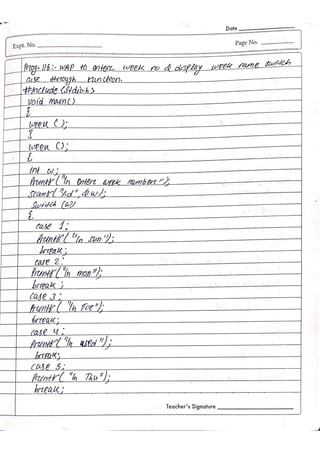 Date
Expt. No.
Page No.
Prog-116:- WAP to enter week no & display week name switch
case through function.
#include <stdio.h>
void main()
{
week ();
}
week ();
{
int w;
printf ("\n enter week number");
scanf ("%d", &w);
switch (w)
{
case 1:
printf ("\n sun");
break;
case 2:
printf ("\n mon");
break ;
case 3:
printf ("\n Tue");
break;
case 4:
printf ("\n wed");
break;
case 5:
printf ("\n Thu");
break;
Teacher's Signature